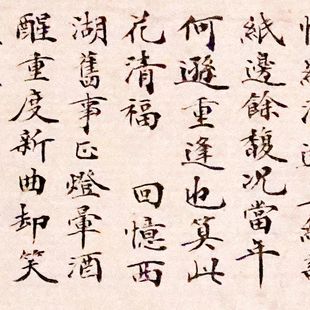 紙邊餘馥況當年
何遜重逢也算此
花清福　回憶西
湖舊事正燈暈酒
醒重度新曲却笑